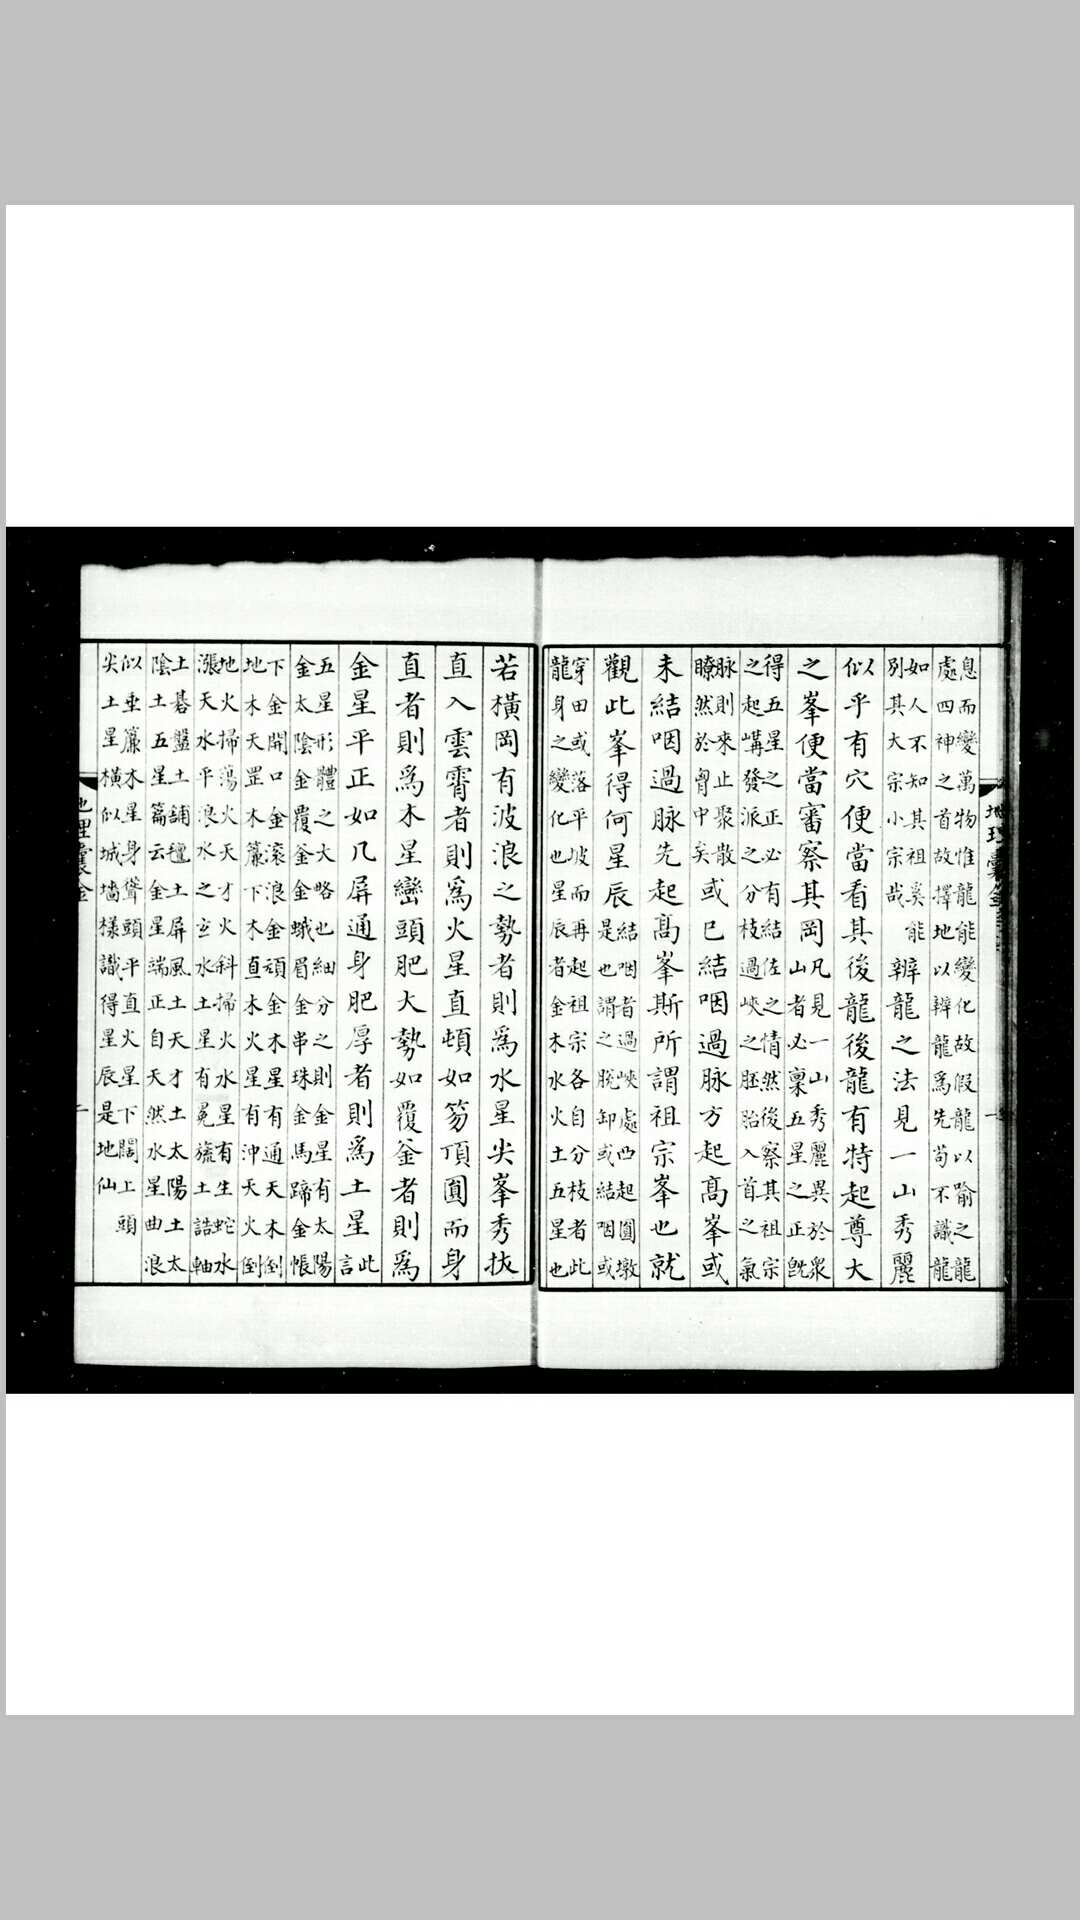 息而變萬物惟龍能變化故假龍以喻之龍
處四神之首故擇地以辨龍爲先苟不識龍
如人不知其祖奚能
别其大宗小宗哉
辨龍之法見一山秀麗
似乎有穴便當看其後龍後龍有特起尊大
之峯便當審察其岡
凡見一山秀麗異於衆
山者必稟五星之正旣
得五星之正必有結佐之情然後察其祖宗
之起嶹發派之分枝過峽之胚胎入首之氣
脉則來止聚散
瞭然於胷中矣
或已結咽過脉方起髙峯或
未結咽過脉先起髙峯斯所謂祖宗峯也就
觀此峯得何星辰
結咽者過峽處凸起圓墩
是也謂之脫卸或結咽或
穿田或落平坡而再起祖宗各自分枝者此
龍身之變化也星辰者金木水火土五星也
若橫岡有波浪之勢者則爲水星尖峯秀扶
直入雲霄者則爲火星直頓如笏頂圓而身
直者則爲木星巒頭肥大勢如覆釜者則爲
金星平正如几屏通身肥厚者則爲土星
此
言
五星形體之大略也細分之則金星有太陽
金太陰金覆釜金蛾眉金串珠金馬蹄金帳
下金開口金滚浪金頑金木星有通天木倒
地木天罡木簾下木直木火星有沖天火倒
地火掃蕩火天才火斜掃火水星有生蛇水
漲天水平浪水之玄水土星有冕旒土誥軸
土碁盤土舖氊土屏風土天才土太陽土太
陰土五星篇云金星端正自天然水星曲浪
似垂簾木星身聳頭平直火星下闊上頭
尖土星橫似城墻樣識得星辰是地仙
地理囊金